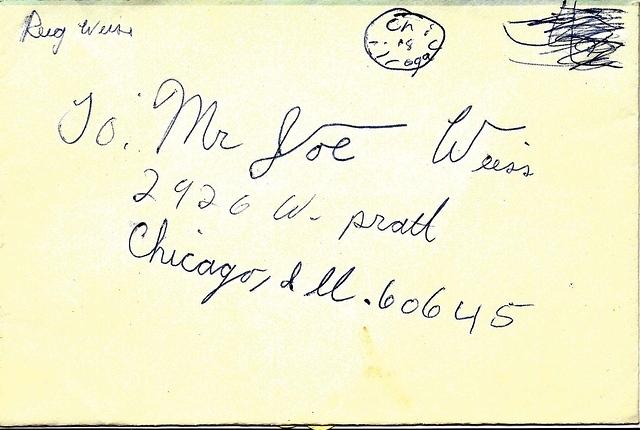 Weiss
Chi
cago
To: Mr Joe Weiss
2920 W. pratt
Chicago, Ill. 60645